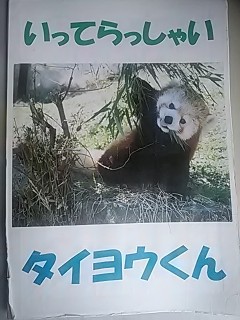 いってらっしゃい
タイヨウくん